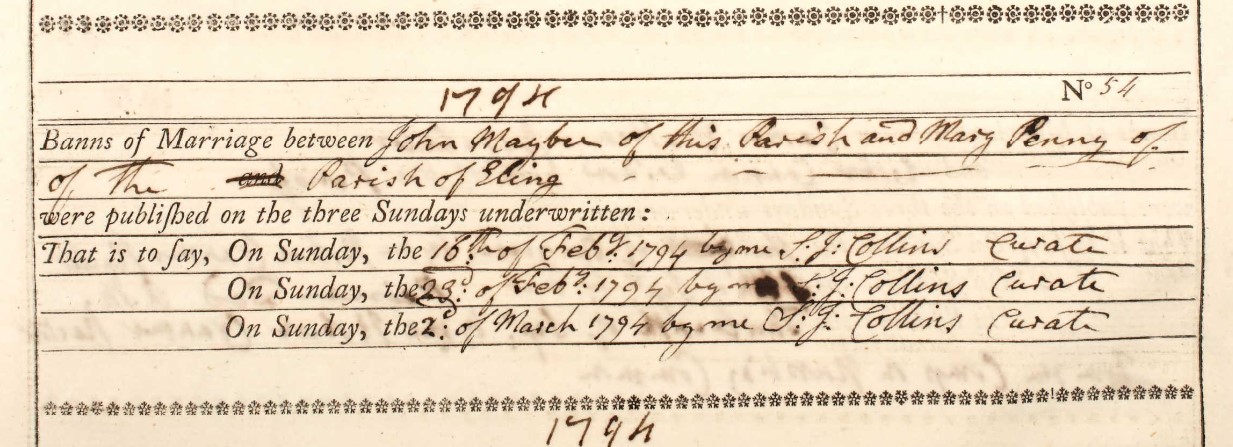 1794
Nº 54
Banns of Marriage between John Maybee of this Parish and Mary Penny of
of the and Parish of Eling
were publiſhed on the three Sundays underwritten:
That is to ſay, On Sunday, the 16th of Feby. 1794 by me S: J: Collins Curate
On Sunday, the 23d: of Feby. 1794 by me S: J: Collins Curate
On Sunday, the 2d: of March 1794 by me S: J: Collins Curate
1794